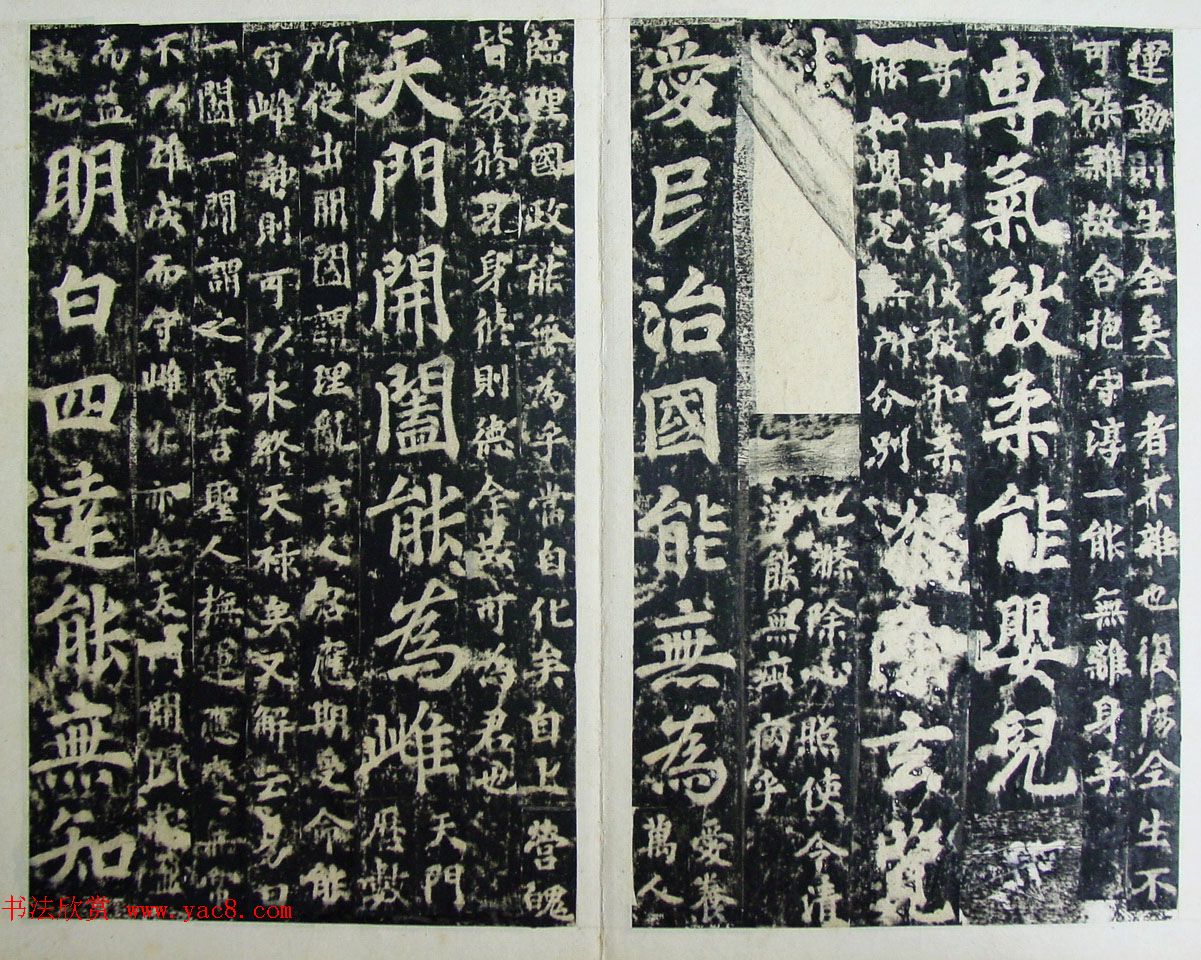 運動則生全矣一者不雜也復陽全生不
可保難故合抱守淳一能無離身乎
專氣致柔能嬰兒
專一沖氣使致和柔
能如嬰兒無所分別
滌除玄覽
世滌除心照使令清
淨能無疵病乎
愛民治國能無為
愛養
萬人
臨理國政能無為乎當自化矣自上營魄
皆教修身身修則德全故可為君也
天門開闔能為雌
天門
曆數
所從出開闔謂理亂言人君應期受命能
守雌靜則可以永終天祿矣又解云易曰
一闔一闢謂之變言聖人撫運應變無
不以雄成而守雌牝亦如天門開闔虛
而益
明白四達能無知
书法欣赏 www.yac8.com